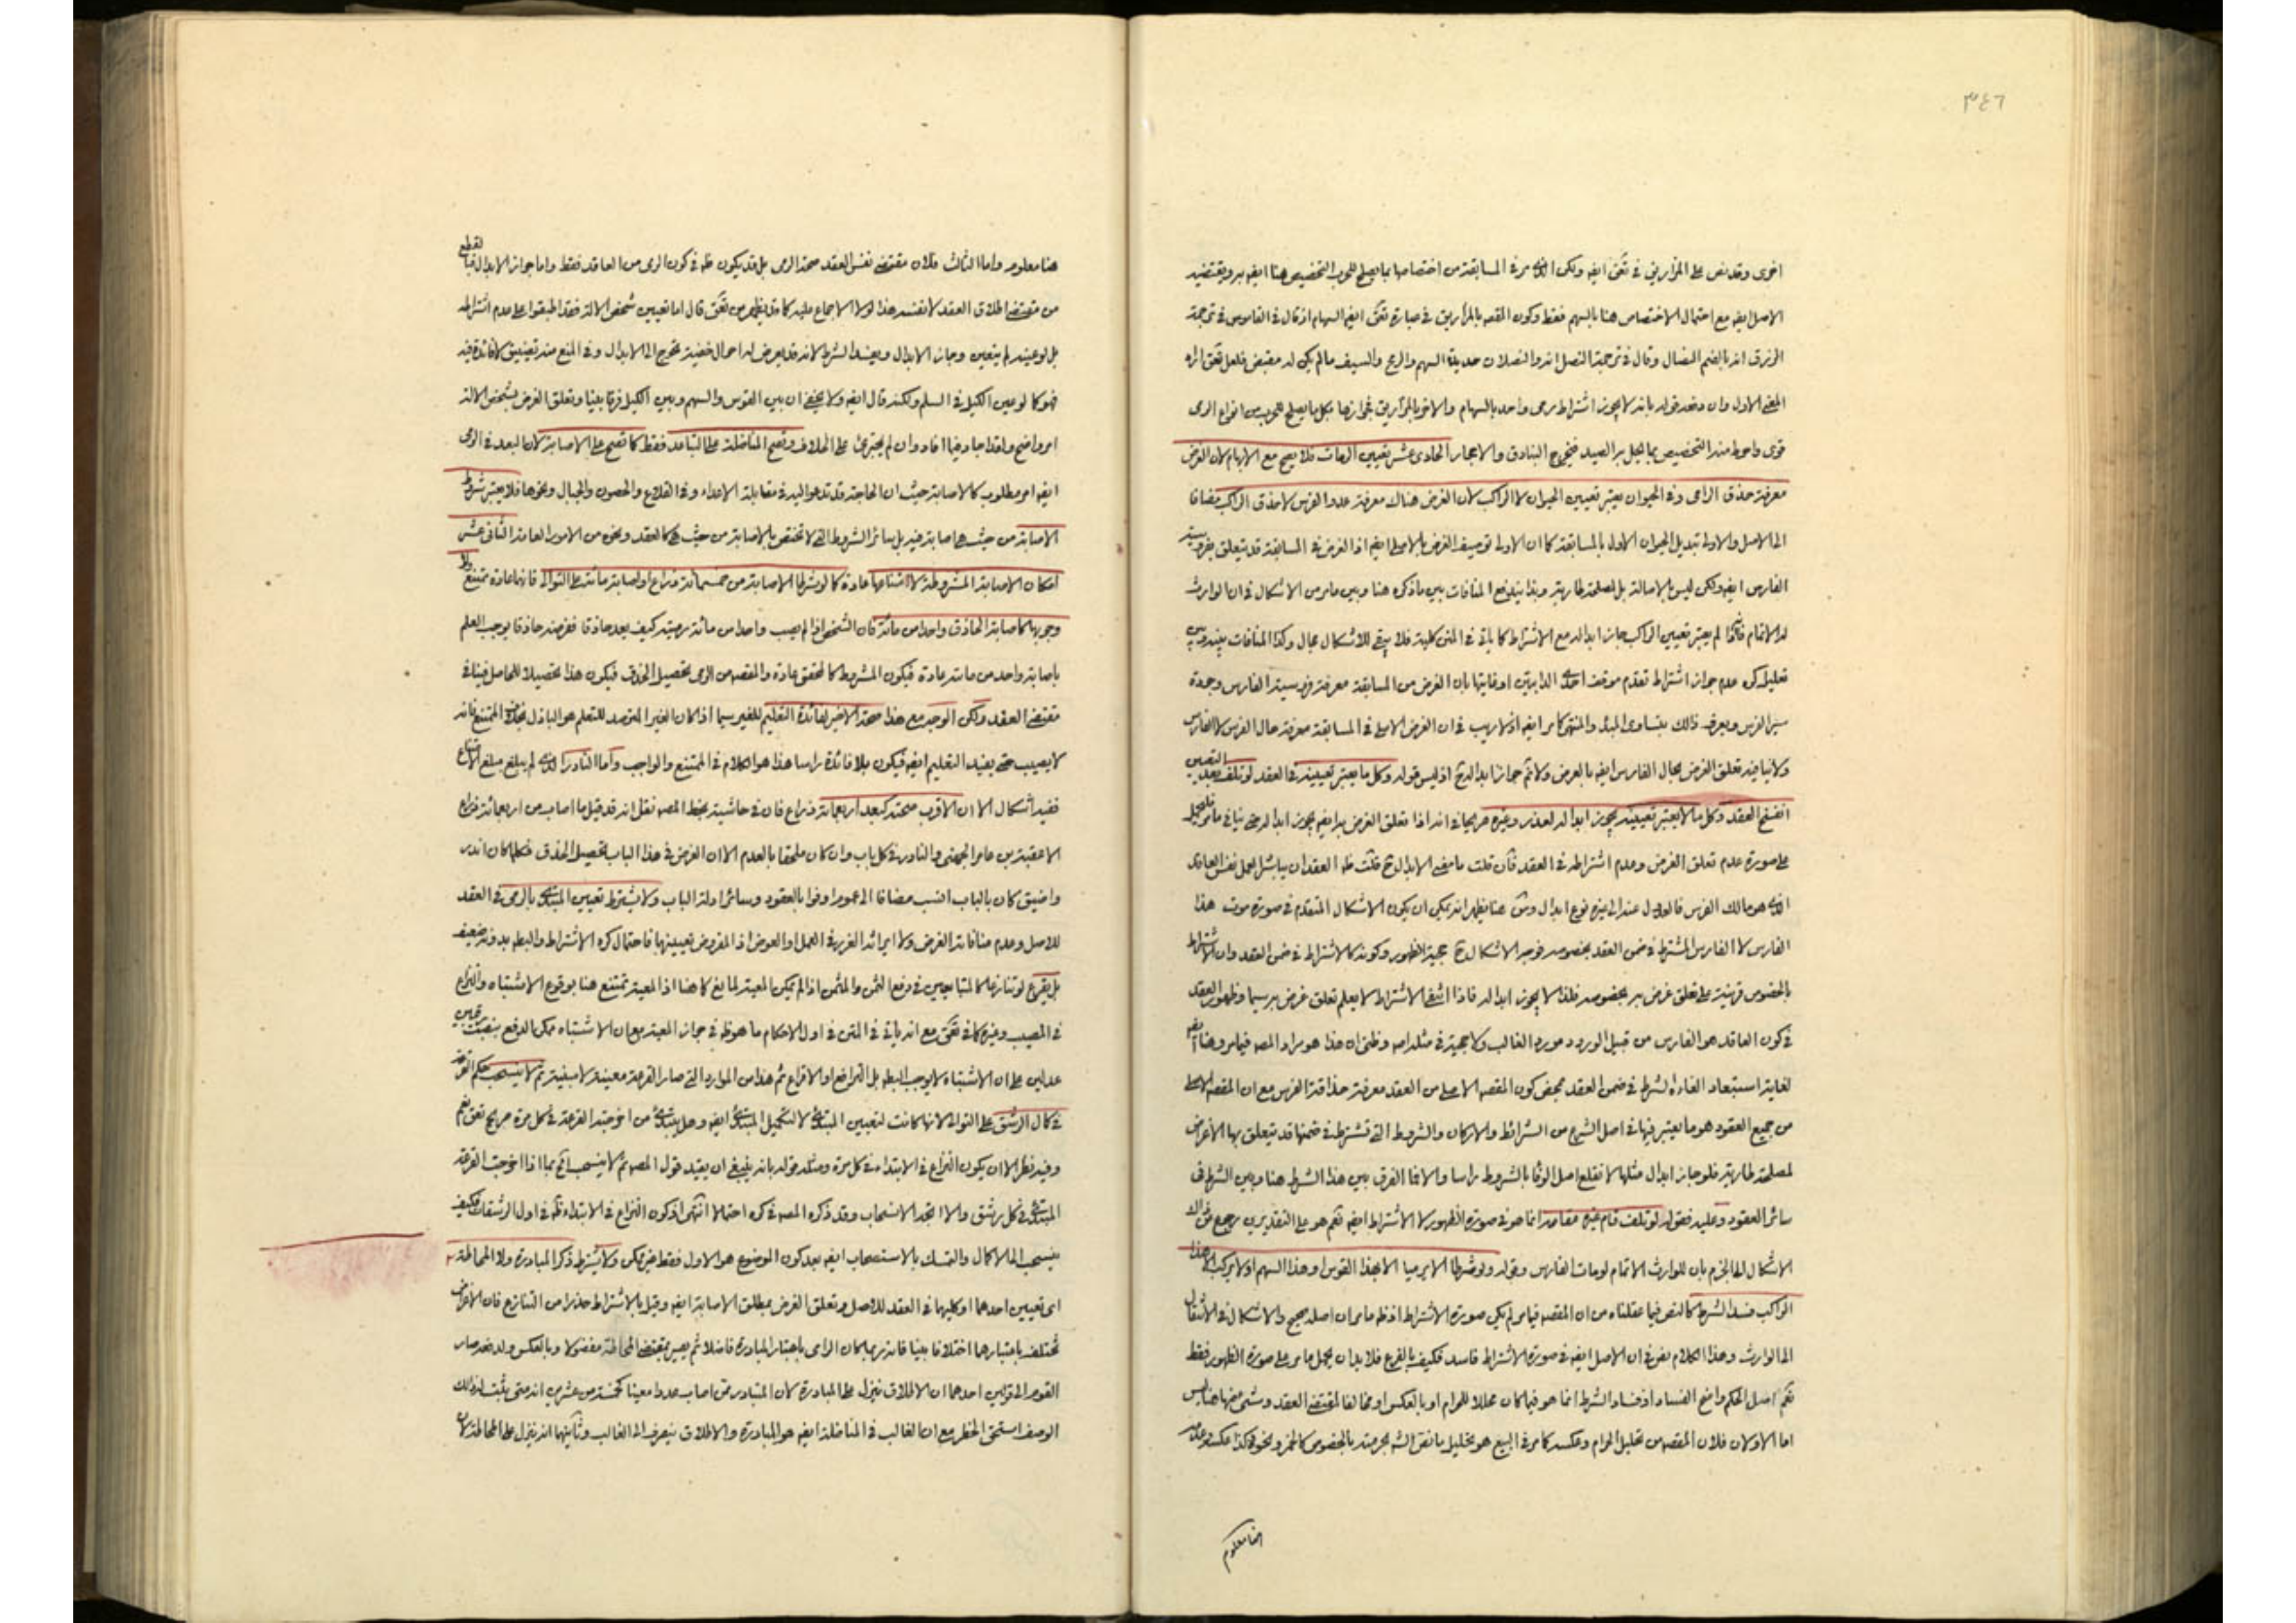 ٣٤٦
اخرى وقد نص على المزاريق في تحق ايضه ولكن الذي مر في المسابقة من اختصاصها بما يصلح للحرب التخصيص هنا ايضه به ويقتضيه
الاصل ايضه مع احتمال الاختصاص هنا بالسهم فقط وكون المقصه بالمزاريق في عبارة تحق ايضه السهام اذ قال في القاموس في ترجمة
الزرق انه بالضم النصال وقال في ترجمة النصل انه والنصلان حديدة السهم والرمح والسيف مالم يكن له مقبض فلعل تحق اراد
المعنى الاول وان وضعه قوله بانه لا يجوز اشتراط رمى واحد بالسهام والاخر بالمزاريق لجوازها بكل ما يصلح للحرب من انواع الرمى
قوى واحوط منه التخصيص بما يحل به الصيد فيخرج البنادق والاحجار الحادى عشر تعيين الرماة فلا يصح مع الابهام لان الغرض
معرفة حذق الرامى وفي الحيوان يعتبر تعيين الحيوان لا الراكب لان الغرض هناك معرفة عدو الفرس لا حذق الراكب مضافا
الى الاصل والاولى تبديل الحيوان الاول بالمسابقة كما ان الاولى توصيف الغرض بالاصلى ايضه اذ الغرض في المسابقة قد يتعلق بفروسية
الفارس ايضه ولكن ليس بالاصالة بل لمصلحة طارية وبذا يندفع المنافات بين ما ذكره هنا وبين ما مر من الاشكال في ان لوارث
له الاتمام فانه اذا لم يعتبر تعيين الراكب جاز ابداله مع الاشتراط كما ياتي في المتن كلية فلا يبقى للاشكال مجال وكذا المنافات بينه وبين
تعليل كره عدم جواز اشتراط تقدم موقف احدى الدابتين او غايتها بان الغرض من المسابقة معرفة فروسية الفارس وجودة
سير الفرس ويعرف ذلك بتساوى المبدء والمنتهى كما مر ايضه اذ لا ريب في ان الغرض الاصلى في المسابقة معرفة حال الفرس لا الفارس
ولا ينافيه تعلق الغرض بحال الفارس ايضه بالعرض ولا تم جواز ابداله مع اذ ليس قوله وكل ما يعتبر تعيينه في العقد لو تلف بعد التعيين
انفسخ العقد وكل ما لا يعتبر تعيينه يجوز ابداله لعذر وغيره صريحا في انه اذا تعلق الغرض به ايضه يجوز ابداله حتى ينافي ما مر فلعله
على صورة عدم تعلق الغرض وعدم اشتراطه في العقد فان قلت ما معنى الابدال مع قلت ظه العقد ان يباشر العمل نفس العاقد
الذي هو مالك الفرس فالعدول عنه الى غيره نوع ابدال ومن هنا يظهر انه يمكن ان يكون الاشكال المتقدم في صورة موت هذا
الفارس لا الفارس المشترط في ضمن العقد بخصوصه فوجه الاشكال مع حجية الظهور وكونه كالاشتراط في ضمن العقد وان الاشتراط
بالخصوص قرينة على تعلق غرض به بخصوصه فلذا لا يجوز ابداله فاذا انتفى الاشتراط لا يعلم تعلق غرض به سيما وظهور العقد
في كون العاقد هو الفارس من قبيل الورود مورد الغالب ولا حجية في مثله وظنى ان هذا هو مراد المصه فيما مر وهنا
لغاية استبعاد الغاءه لشرط في ضمن العقد بمحض كون المقصه الاصلى من العقد معرفة حذاقة الفرس مع ان المقصه الاصلى
من جميع العقود هو ما يعتبر فيها في اصل الشرع من الشرائط والاركان والشروط التى تشترط في ضمنها قد يتعلق بها الاغراض
لمصلحة طارية فلو جاز ابدال مثلها لانقلع اصل الوفا بالشروط راسا والا فما الفرق بين هذا الشرط هنا وبين الشرط في
سائر العقود وعليه فقوله لو تلف قام غيره مقامه انما هو في صورة الظهور لا الاشتراط ايضه نعم هو على التقديرين رجوع من ذلك
الاشكال الى الجزم بان للوارث الاتمام لو مات الفارس وقوله ولو شرطا الا يرميا الا بهذا القوس او هذا السهم او لا يركب الا هذا
الراكب فسد الشرط كالنص فيما عقلناه من ان المقصه فيما مر لم يكن صورة الاشتراط اذ ظه ما مر ان اصله صحيح والاشكال في الانتقال
الى الوارث وهذا الكلام نص في ان الاصل ايضه في صورة الاشتراط فاسد فكيف بالفرع فلا بد ان يحمل ما مر على صورة الظهور فقط
نعم اصل الحكم واضح الفساد اذ فساد الشرط انما هو فيما كان محللا للحرام او بالعكس او مخالفا لمقتضى العقد وشئ منها هنا ليس
اما الاولان فلان المقصه من تحليل الحرام وعكسه كما مر في البيع هو تحليل ما نص الشه بحرمته بالخصوص كالخمر ونحوه وكذا عكسه
هنا معلوم
هنا معلوم واما الثالث فلان مقتضى نفس العقد صحة الرمى بل قد يكون ظه في كون الرمى من العاقد فقط واما جواز الابدال
من مقتضى اطلاق العقد لا نفسه هذا لولا الاجماع عليه كما قد يظهر من تحق قال اما تعيين شخص الالة فقد اطبقوا على عدم اشتراطه
بل لو عينه لم يتعين وجاز الابدال ويفسد الشرط لانه قد يعرض له احوال خفية تحوج الى الابدال وفي المنع منه تضييق لا فائدة فيه
فهو كما لو عين الكيل في السلم ولكنه قال ايضه ولا يخفى ان بين القوس والسهم وبين الكيل فرقا بينا وتعلق الغرض بشخص الالة
امر واضح ولقد اجاد فيما افاد وان لم يجترئ على الخلاف وتصح المناضلة على التباعد فقط كما تصح على الاصابة لان البعد في الرمى
ايضه امر مطلوب كالاصابة حيث ان الحاجة قد تدعو اليه في مقابلة الاعداء وفي القلاع والحصون والجبال ونحوها فلا يعتبر شروط
الاصابة من حيث هي اصابة فيه بل سائر الشروط التى لا تختص بالاصابة من حيث هي كالعقد ونحوه من الامور العامة الثانى عشر
امكان الاصابة المشروطة لا امتناعها عادة كما لو شرطا الاصابة من خمسمائة ذراع او اصابة مائة على التوالى فانها عادة تمتنع ولا
وجوبها كاصابة الحاذق واحدا من مائة فان الشخص اذا لم يصب واحدا من مائة رمية كيف يعد حاذقا ففرضه حاذقا يوجب العلم
باصابة واحد من مائة عادة فيكون المشروط كالمحقق عادة والمقصه من الرمى تحصيل الحذق فيكون هذا تحصيلا للحاصل فينافي
مقتضى العقد ولكن الوجه مع هذا صحة الاخير لفائدة التعليم للغير سيما اذا كان الغير المترصد للتعلم هو الباذل بخلاف الممتنع فانه
لا يصيب حتى يفيد التعليم ايضه فيكون بلا فائدة راسا هذا هو الكلام في الممتنع والواجب واما النادر الذى لم يبلغ مبلغ الامتناع
ففيه اشكال الا ان الاقرب صحته كبعد اربعمائة ذراع فان في حاشية بخط المصه نقل انه قد قيل ما اصاب من اربعمائة ذراع
الا عقبة بن عامر الجهنى والنادر في كل باب وان كان ملحقا بالعدم الا ان الغرض في هذا الباب تحصيل الحذق فكلما كان اندر
واضيق كان بالباب انسب مضافا الى عموم اوفوا بالعقود وسائر ادلة الباب ولا يشترط تعيين المبتدئ بالرمى في العقد
للاصل وعدم منافاته الغرض ولا ايراثه الغرر في العمل او العوض اذ المفروض تعيينها فاحتمال كره الاشتراط والبطه بدونه ضعيف
بل يقرع لو تنازعا كالمتبايعين في دفع الثمن والمثمن اذا لم يمكن المعية لمانع كما هنا اذ المعية تمتنع هنا بوقوع الاشتباه والنزاع
في المصيب وغيره كما في تحق مع انه ياتى في المتن في اول الاحكام ما هو ظه في جواز المعية مع ان الاشتباه ممكن الدفع بنصب
عدلين على ان الاشتباه لا يوجب البطه بل التراضع او الاقراع ثم هذا من الموارد التى صار القرعة معينة لا مبينة ثم لا ينسحب حكم القرعة
في كمال الرشق على التوالى لانها كانت لتعيين المبتدئ لا لتكميل المبتدئ ايضه وهل يبتدئ من اخرجته القرعة في كل مرة صريح تحق نعم
وفيه نظر الا ان يكون النزاع في الابتداء في كل مرة ومثله قوله بانه ينبغى ان يقيد قول المصه ثم لا ينسحب الخ بما اذا اخرجت القرعة
المبتدئ في كل رشق والا اتجه الانسحاب وقد ذكره المصه في كره احتمالا انتهى اذ كون النزاع في الابتداء ظه في اول الرشقات فكيف
ينسحب الى الاكمال والتمسك بالاستصحاب ايضه بعد كون الموضوع هو الاول فقط غير ممكن ولا يشترط ذكر المبادرة ولا المحاطة
اى تعيين احدهما او كليهما في العقد للاصل وتعلق الغرض بمطلق الاصابة ايضه وقيل بالاشتراط حذرا من التنازع فان الاغراض
تختلف باعتبارهما اختلافا بينا فانه ربما كان الرامى باعتبار المبادرة فاضلا ثم يصير بمقتضى المحاطة مفضولا وبالعكس ولضعفه صار
القوم الى قولين احدهما ان الاطلاق ينزل على المبادرة لان المتبادر ممن اصاب عددا معينا كخمسة من عشرين انه متى يثبت له ذلك
الوصف استحق الخطر مع ان الغالب في المناضلة ايضه هو المبادرة والاطلاق ينصرف الى الغالب وثانيهما انه ينزل على المحاطة لان